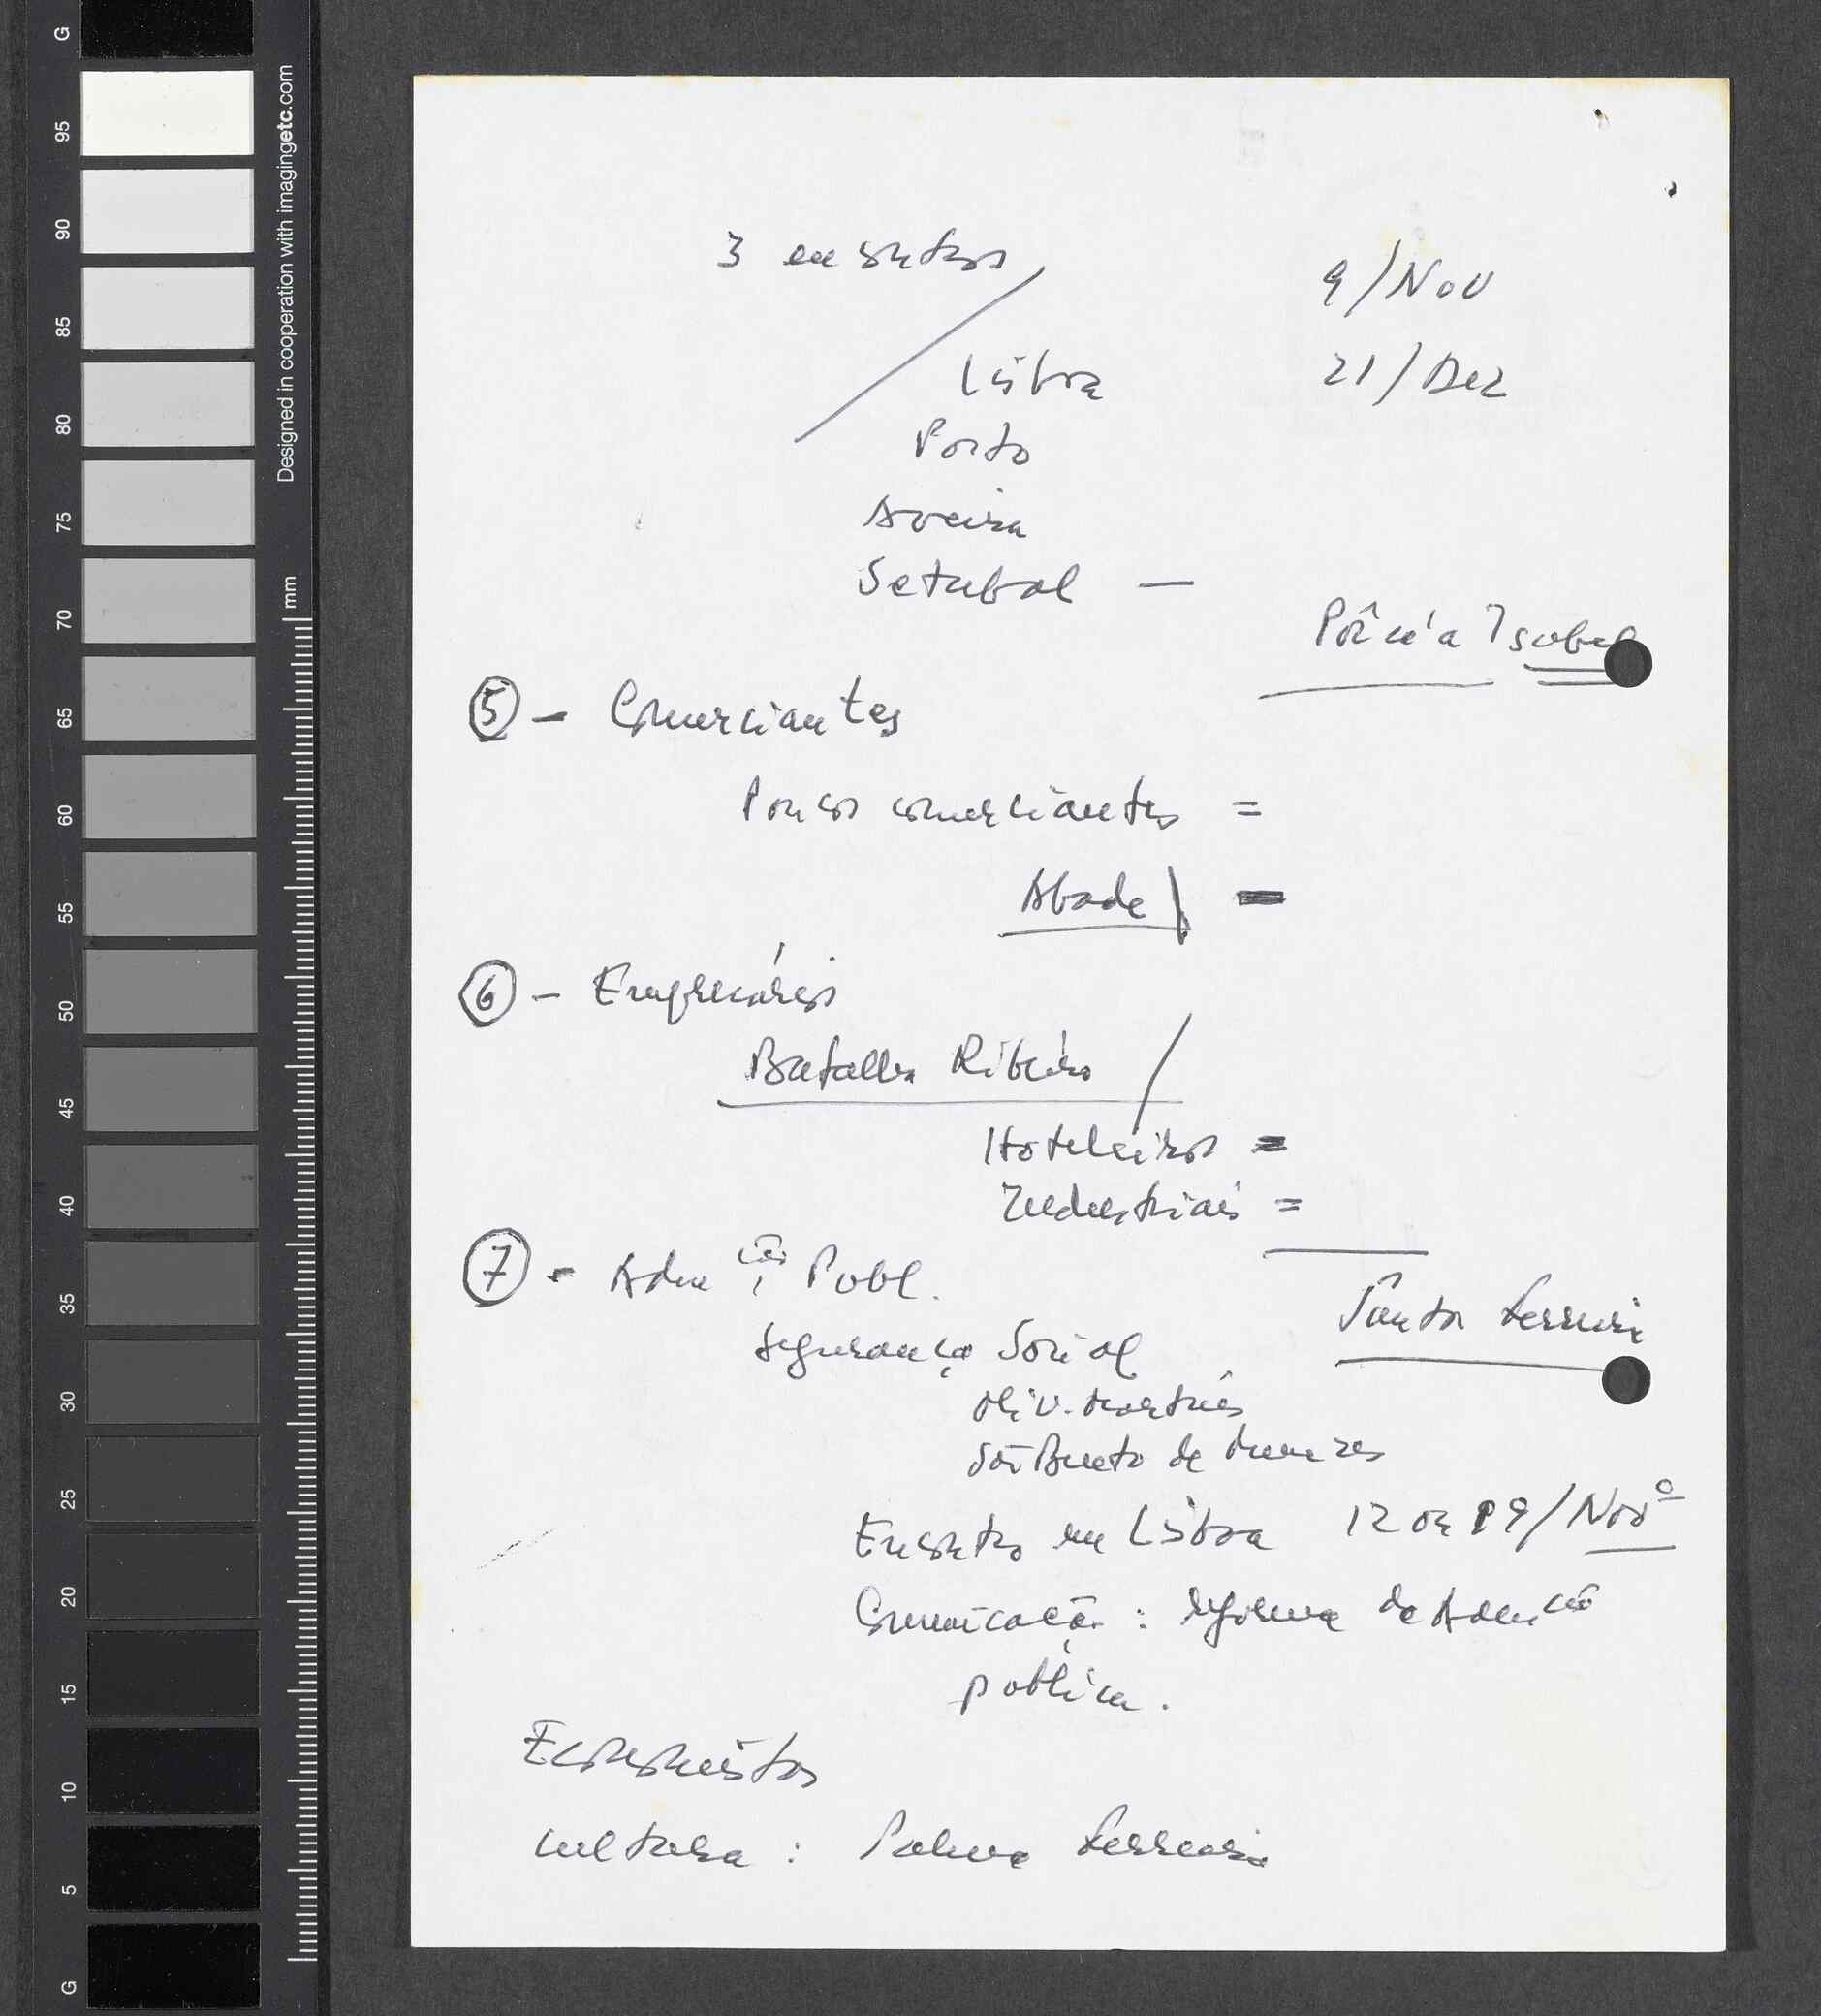 3 encontros
9/Nov
Lisboa
21/Dez
Porto
Aveiro
Setubal —
Isabel
5 - Comerciantes
Poucos comerciantes =
Abade
6 - Empresários
Batalha Ribeiro
Hoteleiros =
Industriais =
7 - Adm ção Publ.
Ferreira
Segurança Social
Oliv. Martins
de Menezes
Encontro em Lisboa 12 ou 19/Novº
Comunicação: Reforma da Admção
publica.
Economistas
Cultura: Palma Ferreira
G
95
90
85
80
75
70
65
60
55
50
45
40
35
30
25
20
15
10
5
G
Designed in cooperation with imagingetc.com
mm